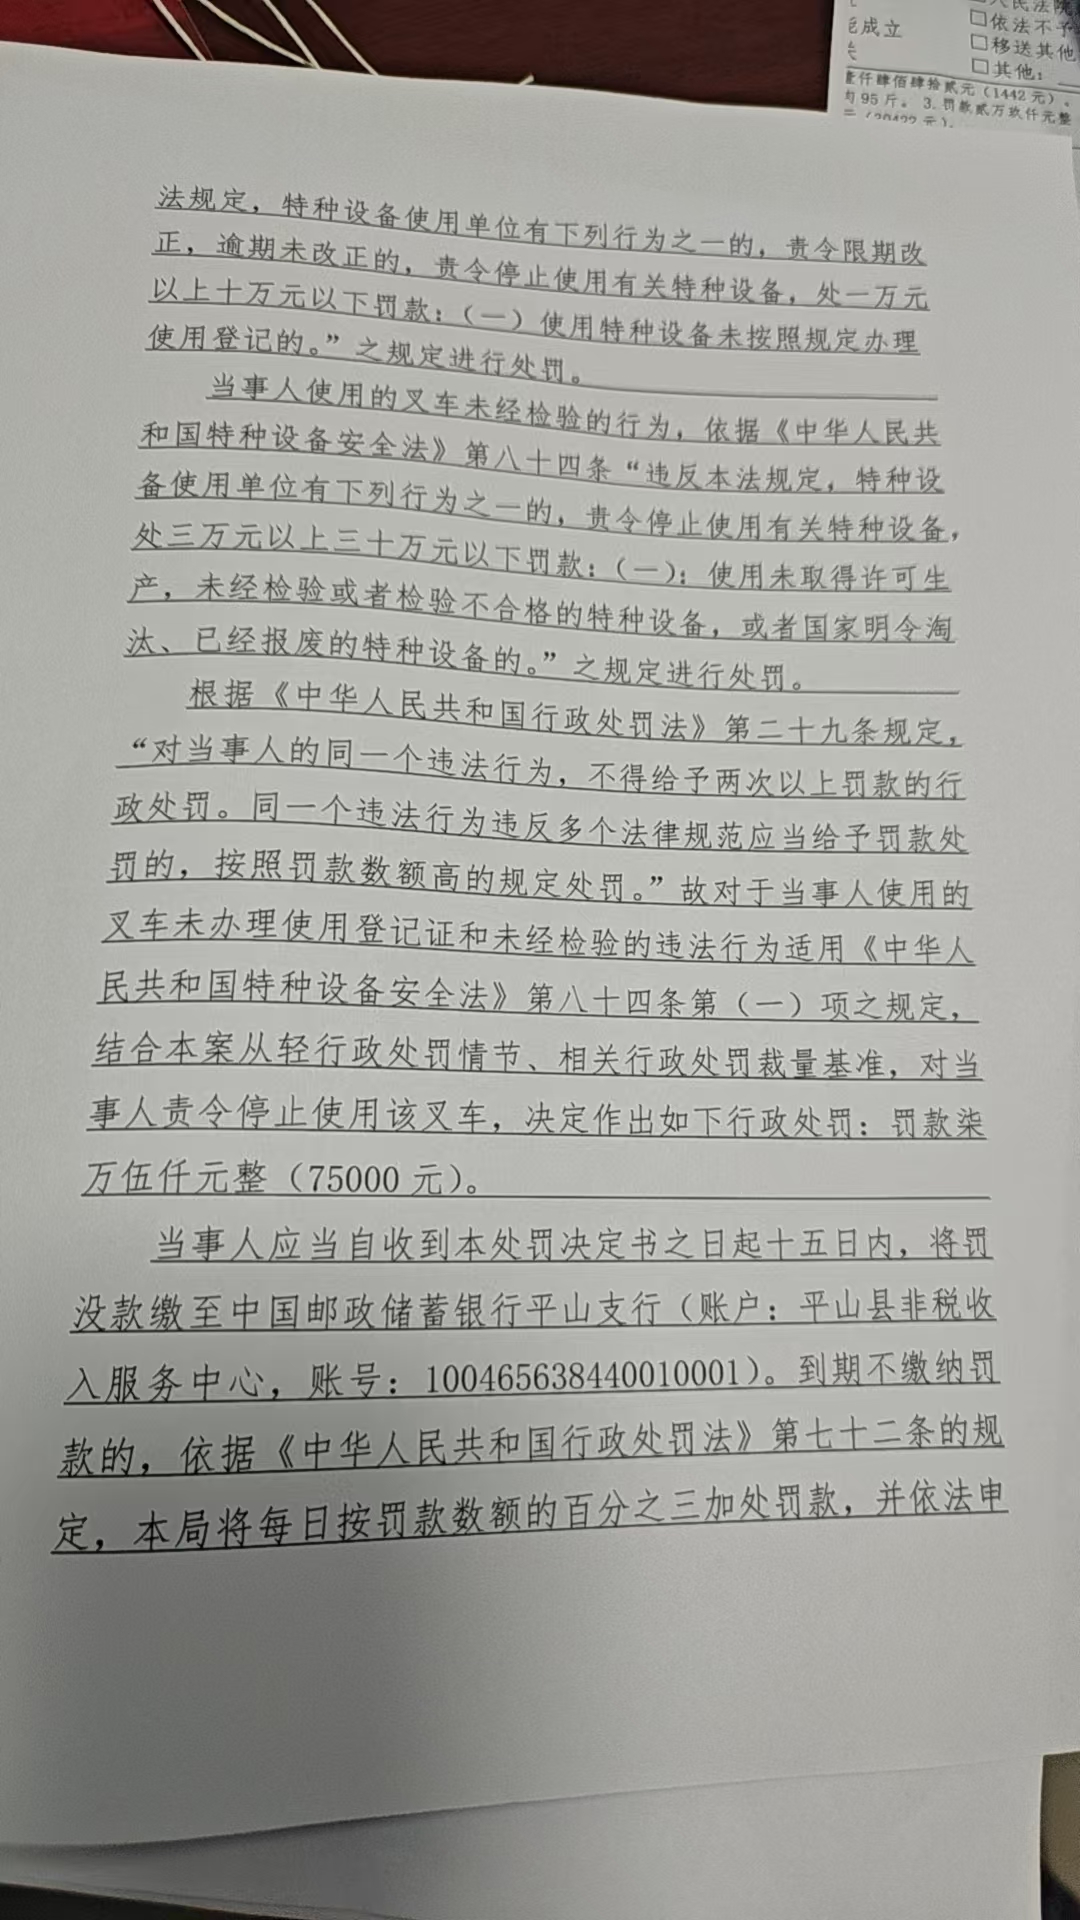 成立
□依法不予
□移送其他
□其他：
仟肆佰肆拾贰元（1442元）。
95斤。 3.罚款贰万玖仟元整
法规定，特种设备使用单位有下列行为之一的，责令限期改
正，逾期未改正的，责令停止使用有关特种设备，处一万元
以上十万元以下罚款：（一）使用特种设备未按照规定办理
使用登记的。”之规定进行处罚。
当事人使用的叉车未经检验的行为，依据《中华人民共
和国特种设备安全法》第八十四条“违反本法规定，特种设
备使用单位有下列行为之一的，责令停止使用有关特种设备，
处三万元以上三十万元以下罚款：（一）：使用未取得许可生
产，未经检验或者检验不合格的特种设备，或者国家明令淘
汰、已经报废的特种设备的。”之规定进行处罚。
根据《中华人民共和国行政处罚法》第二十九条规定，
“对当事人的同一个违法行为，不得给予两次以上罚款的行
政处罚。同一个违法行为违反多个法律规范应当给予罚款处
罚的，按照罚款数额高的规定处罚。”故对于当事人使用的
叉车未办理使用登记证和未经检验的违法行为适用《中华人
民共和国特种设备安全法》第八十四条第（一）项之规定，
结合本案从轻行政处罚情节、相关行政处罚裁量基准，对当
事人责令停止使用该叉车，决定作出如下行政处罚：罚款柒
万伍仟元整（75000元）。
当事人应当自收到本处罚决定书之日起十五日内，将罚
没款缴至中国邮政储蓄银行平山支行（账户：平山县非税收
入服务中心，账号：100465638440010001）。到期不缴纳罚
款的，依据《中华人民共和国行政处罚法》第七十二条的规
定，本局将每日按罚款数额的百分之三加处罚款，并依法申